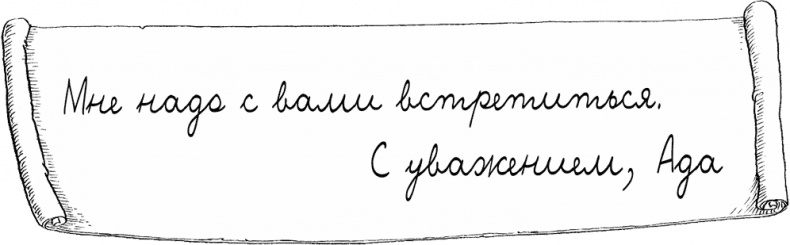 Мне надо с вами встретиться.
С уважением, Ада